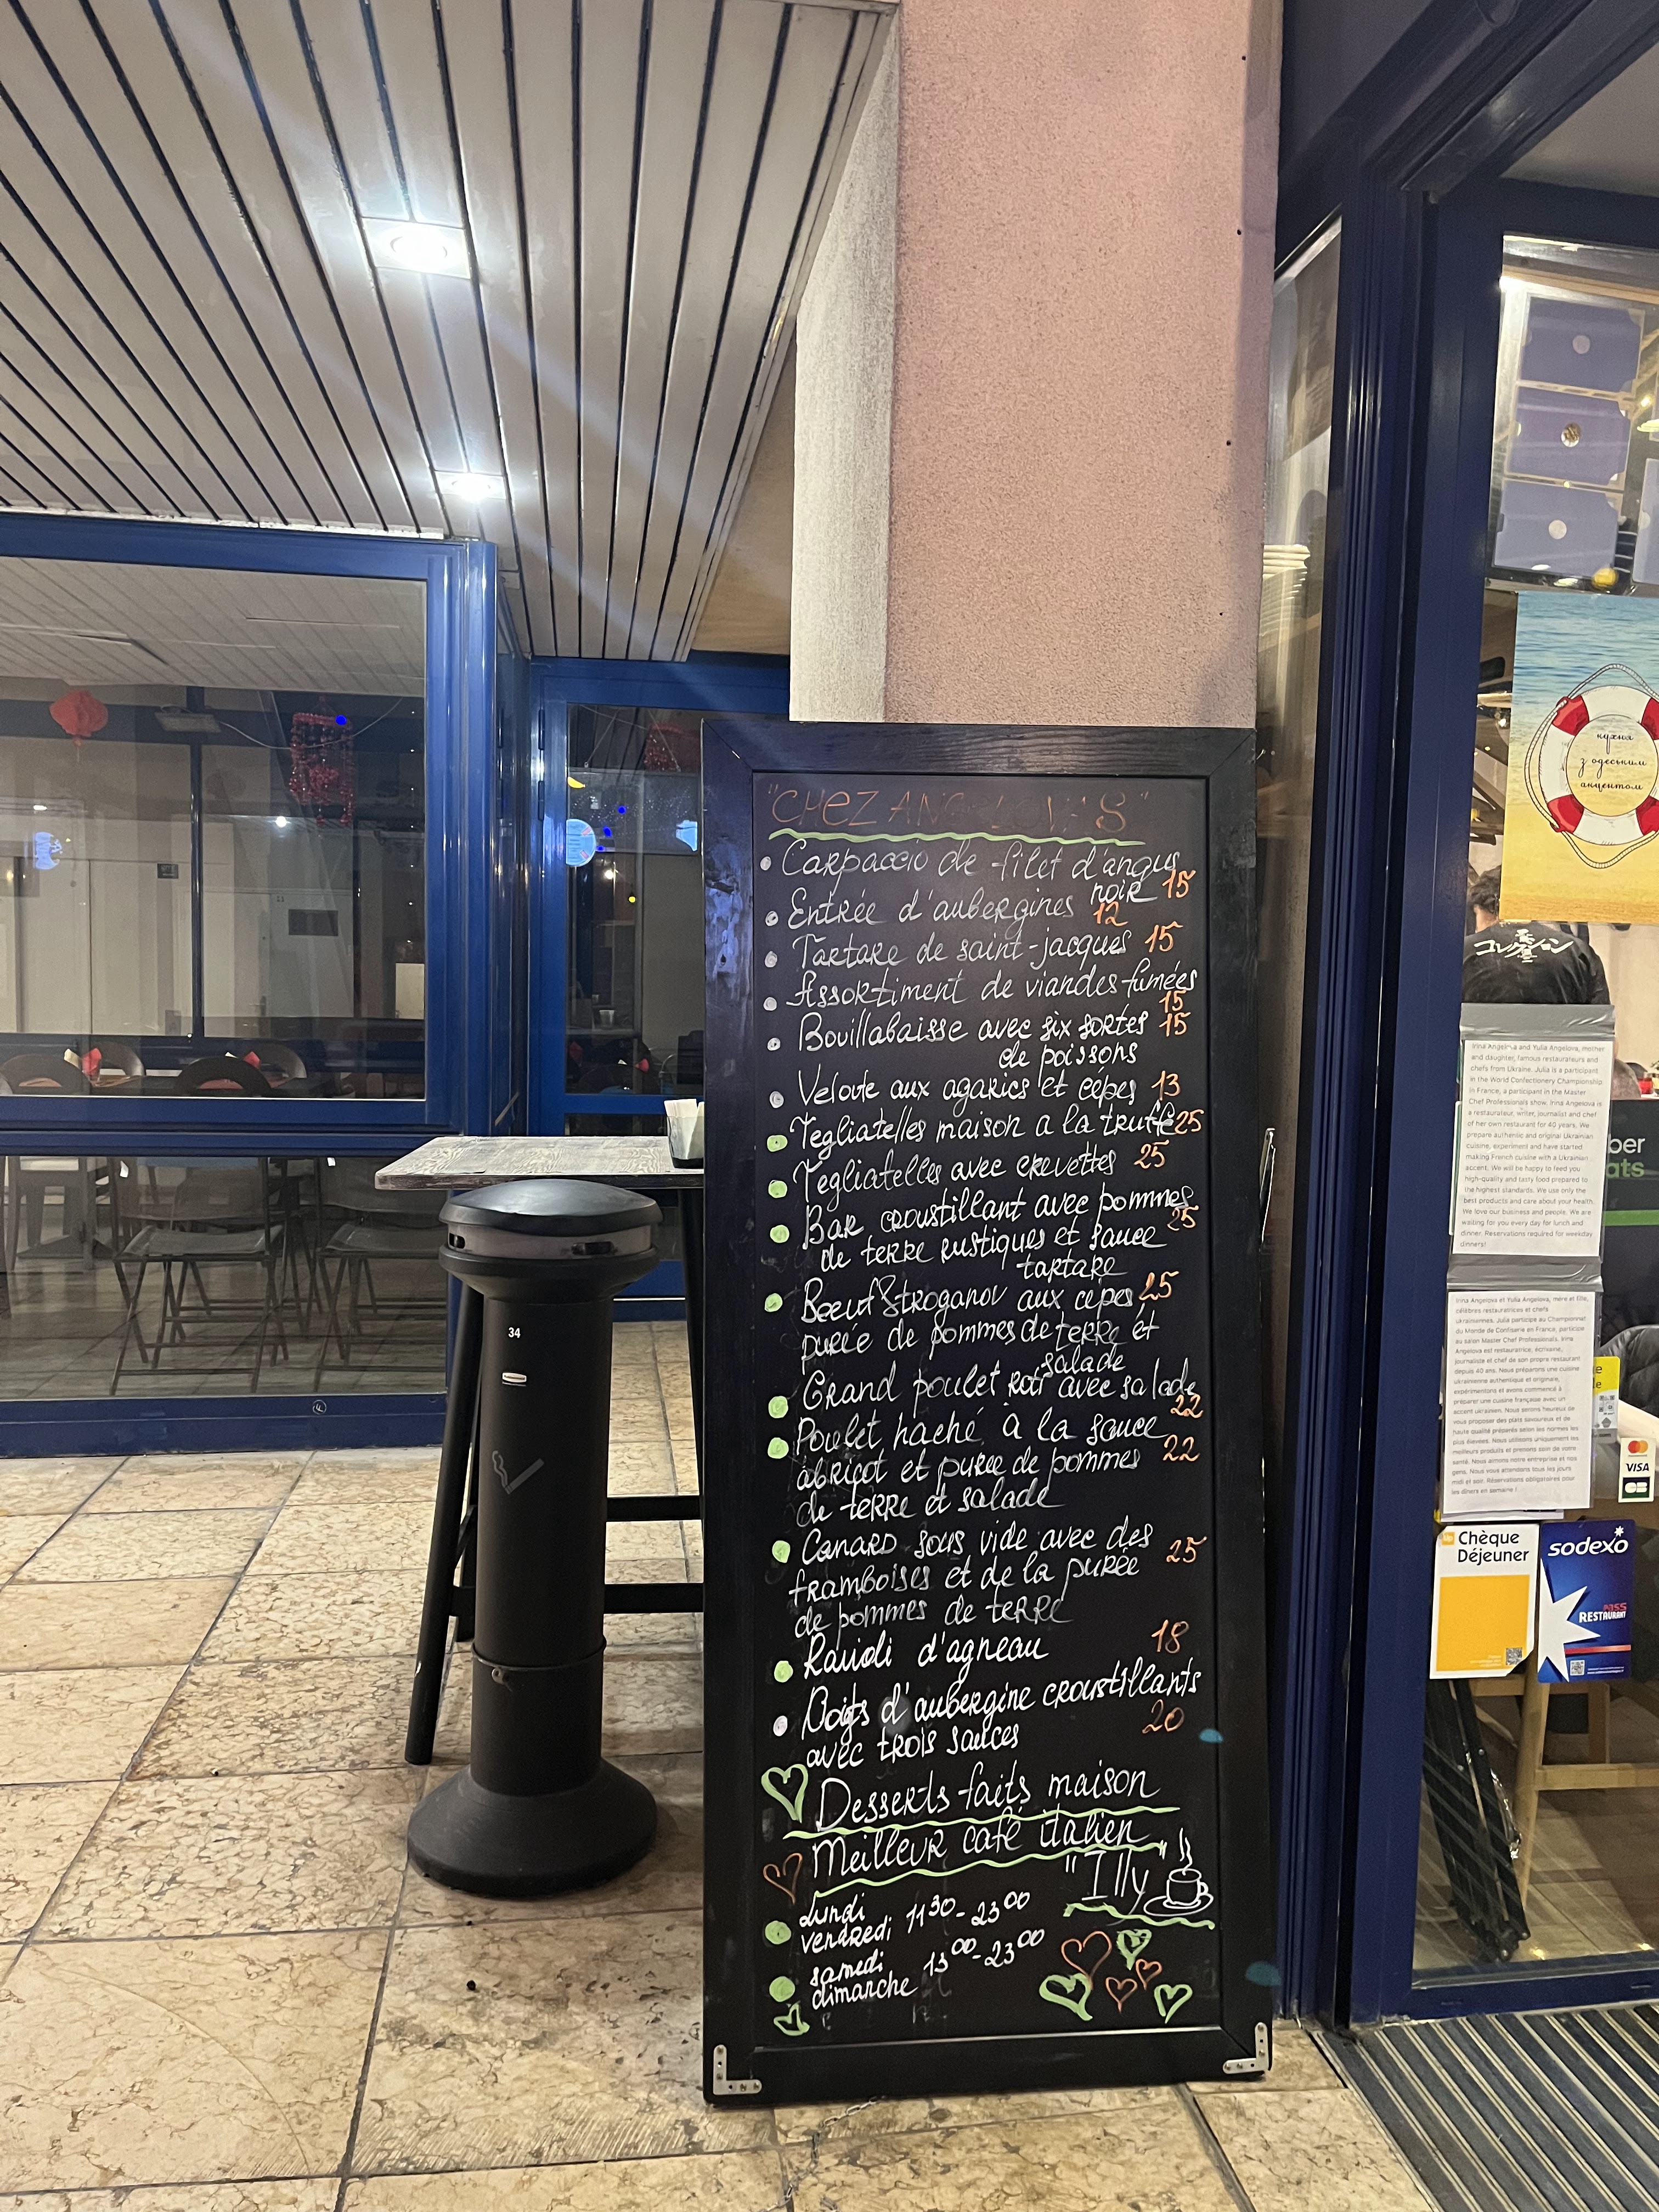 "CHEZ
• Carpaccio de filet d'angus
noir 15
• Entrée d'aubergines 12
• Tartare de saint-jacques 15
• Assortiment de viandes fumées
15
• Bouillabaisse avec six sortes 15
de poissons
• Veloute aux agarics et cépes 13
• Tegliatelles maison a la truffe 25
• Tegliatelles avec crevettes 25
• Bar croustillant avec pommes
25
de terre rustiques et sauce
tartare
• Boeuf Stroganov aux cépes 25
purée de pommes de terre et
salade
• Grand poulet roti avec salade
22
• Poulet haché à la sauce
abricot et purée de pommes 22
de terre et salade
• Canard sous vide avec des
framboises et de la purée 25
de pommes de terre
• Ravioli d'agneau 18
• Doigts d'aubergine croustillants
avec trois sauces 20
Desserts faits maison
Meilleur café italien
"Illy"
• Lundi
vendredi 11³⁰-23⁰⁰
• samedi
dimanche 13⁰⁰-23⁰⁰
34
кухня
з одеським
акцентом
コレクション
Irina Angelova and Yulia Angelova, mother
and daughter, famous restaurateurs and
chefs from Ukraine. Julia is a participant
in the World Confectionery Championship
in France, a participant in the Master
Chef Professionals show. Irina Angelova is
a restaurateur, writer, journalist and chef
of her own restaurant for 40 years. We
prepare authentic and original Ukrainian
cuisine, experiment and have started
making French cuisine with a Ukrainian
accent. We will be happy to feed you
high-quality and tasty food prepared to
the highest standards. We use only the
best products and care about your health.
We love our business and people. We are
waiting for you every day for lunch and
dinner. Reservations required for weekday
dinners!
Irina Angelova et Yulia Angelova, mère et fille,
célèbres restauratrices et chefs
ukrainiennes. Julia participe au Championnat
du Monde de Confiserie en France, participe
au salon Master Chef Professionals. Irina
Angelova est restauratrice, écrivaine,
journaliste et chef de son propre restaurant
depuis 40 ans. Nous préparons une cuisine
ukrainienne authentique et originale,
expérimentons et avons commencé à
préparer une cuisine française avec un
accent ukrainien. Nous serons heureux de
vous proposer des plats savoureux et de
haute qualité préparés selon les normes les
plus élevées. Nous utilisons uniquement les
meilleurs produits et prenons soin de votre
santé. Nous aimons notre entreprise et nos
gens. Nous vous attendons tous les jours
midi et soir. Réservations obligatoires pour
les dîners en semaine !
ber
ats
mastercard
VISA
CB
Chèque
Déjeuner
sodexo
PASS
RESTAURANT